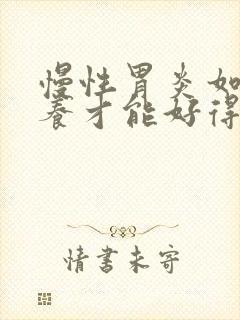 慢性胃炎如
养才能好得
情书未寄